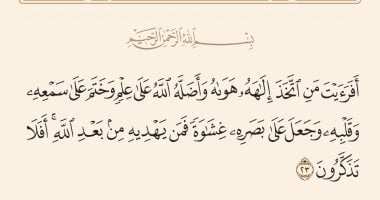 بِسْمِ اللَّهِ الرَّحْمَٰنِ الرَّحِيمِ
أَفَرَءَيْتَ مَنِ ٱتَّخَذَ إِلَٰهَهُۥ هَوَىٰهُ وَأَضَلَّهُ ٱللَّهُ عَلَىٰ عِلْمٍ وَخَتَمَ عَلَىٰ سَمْعِهِۦ
وَقَلْبِهِۦ وَجَعَلَ عَلَىٰ بَصَرِهِۦ غِشَٰوَةً فَمَن يَهْدِيهِ مِنۢ بَعْدِ ٱللَّهِ ۚ أَفَلَا
تَذَكَّرُونَ ٢٣